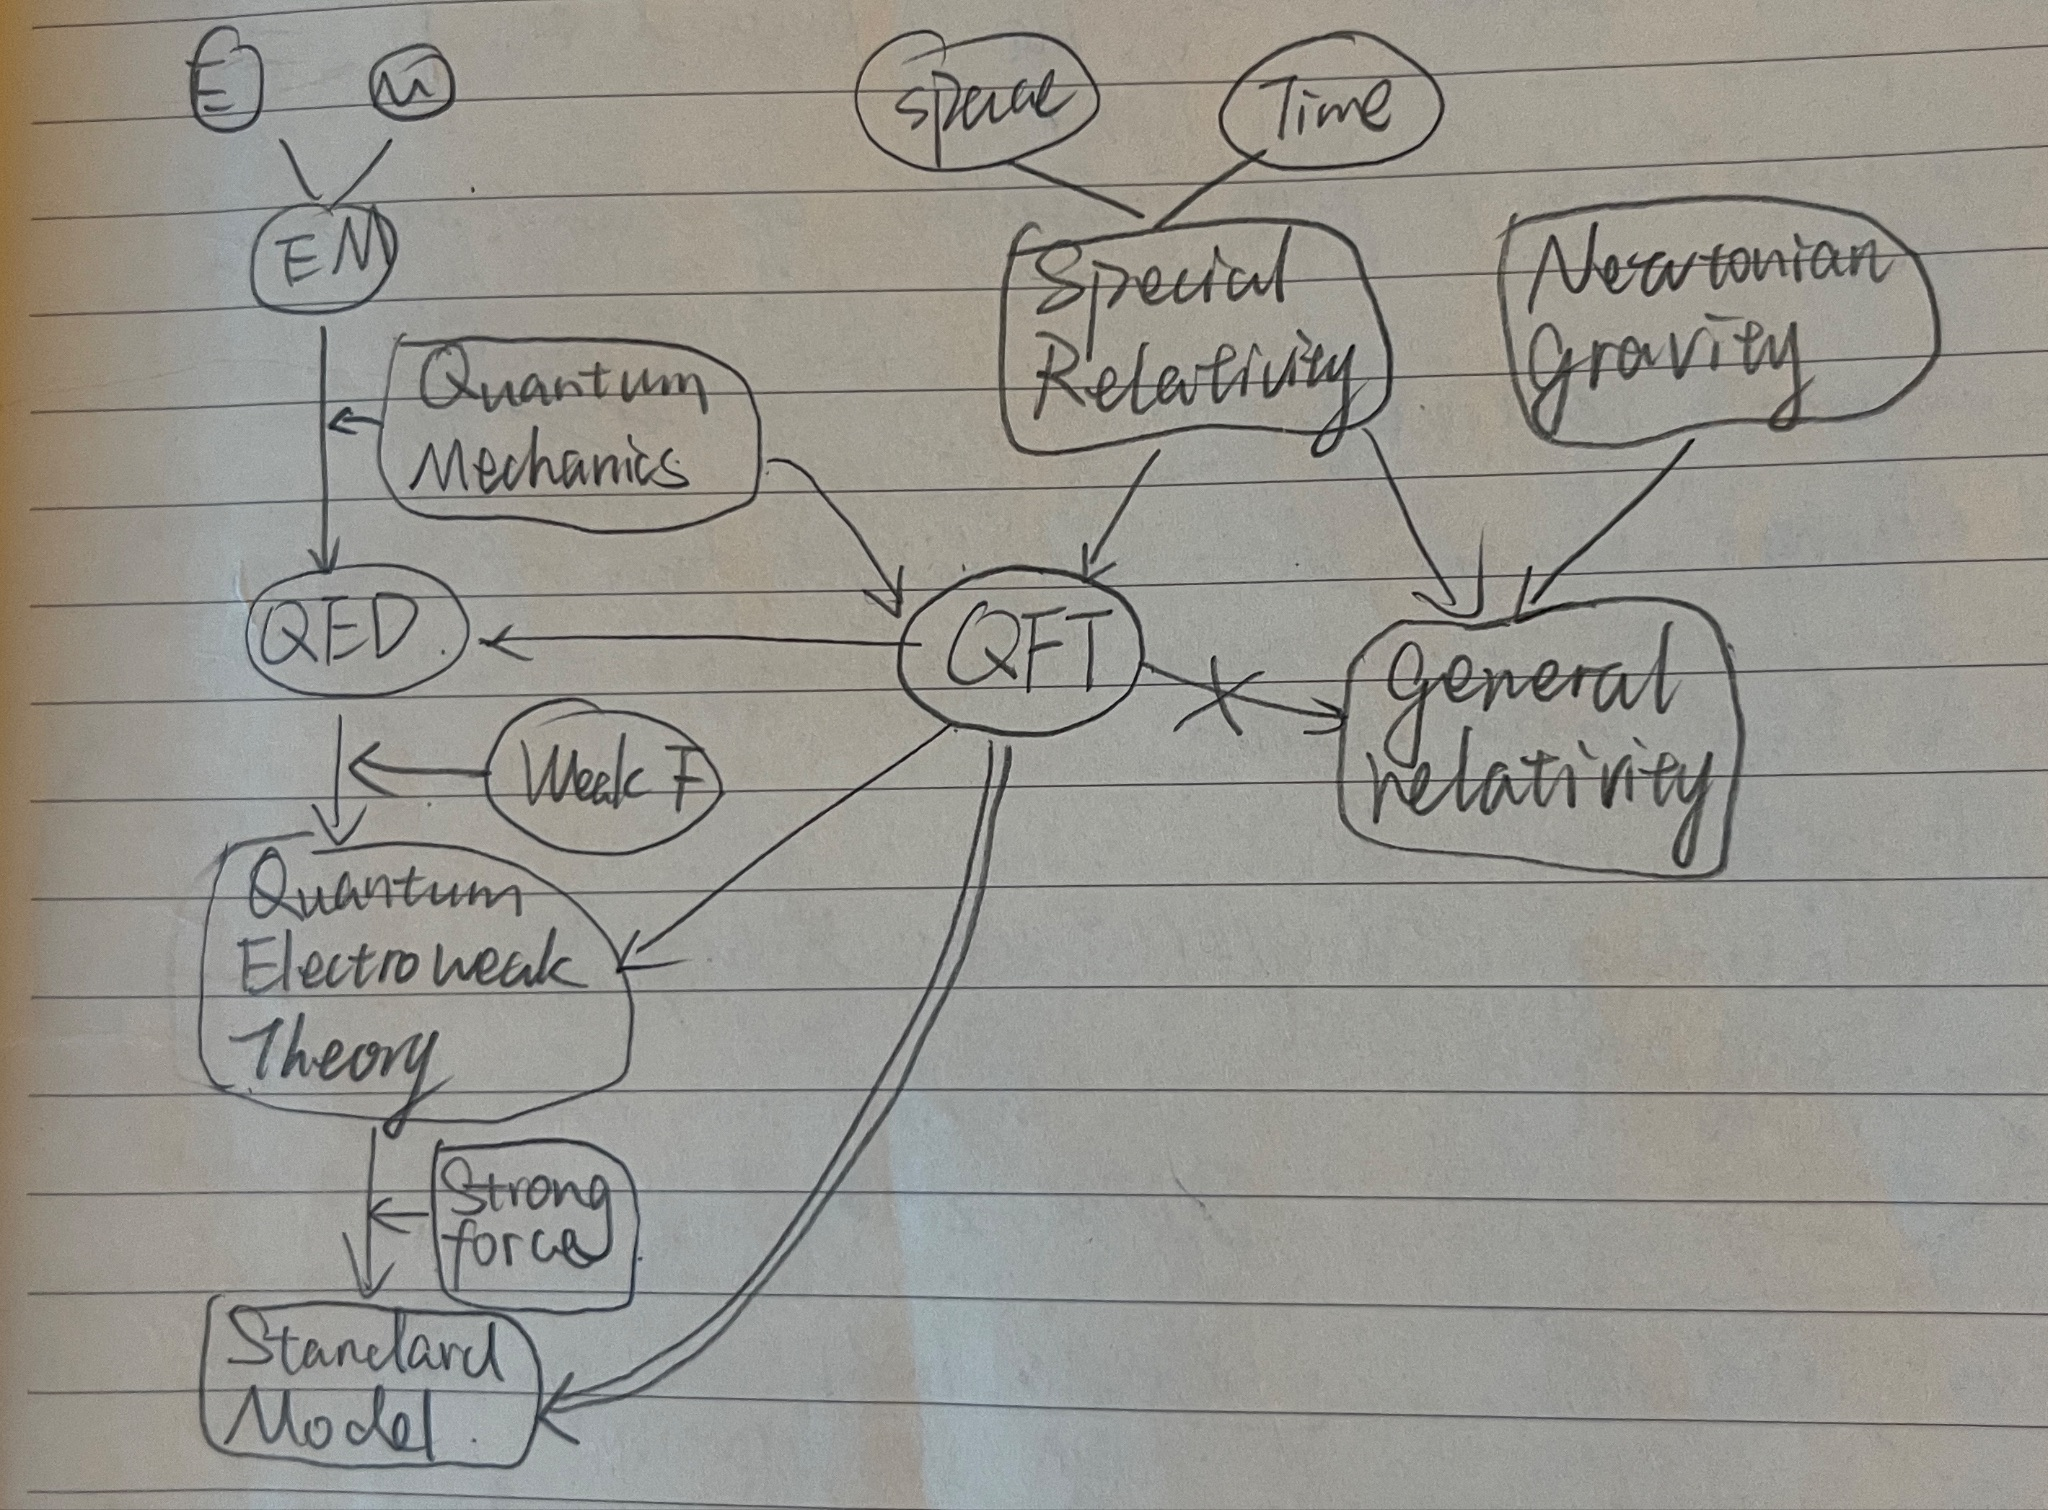 E
M
space
Time
EM
Special
Relativity
Newtonian
Gravity
Quantum
Mechanics
QED
QFT
General
relativity
Weak F
Quantum
Electroweak
Theory
Strong
force
Standard
Model